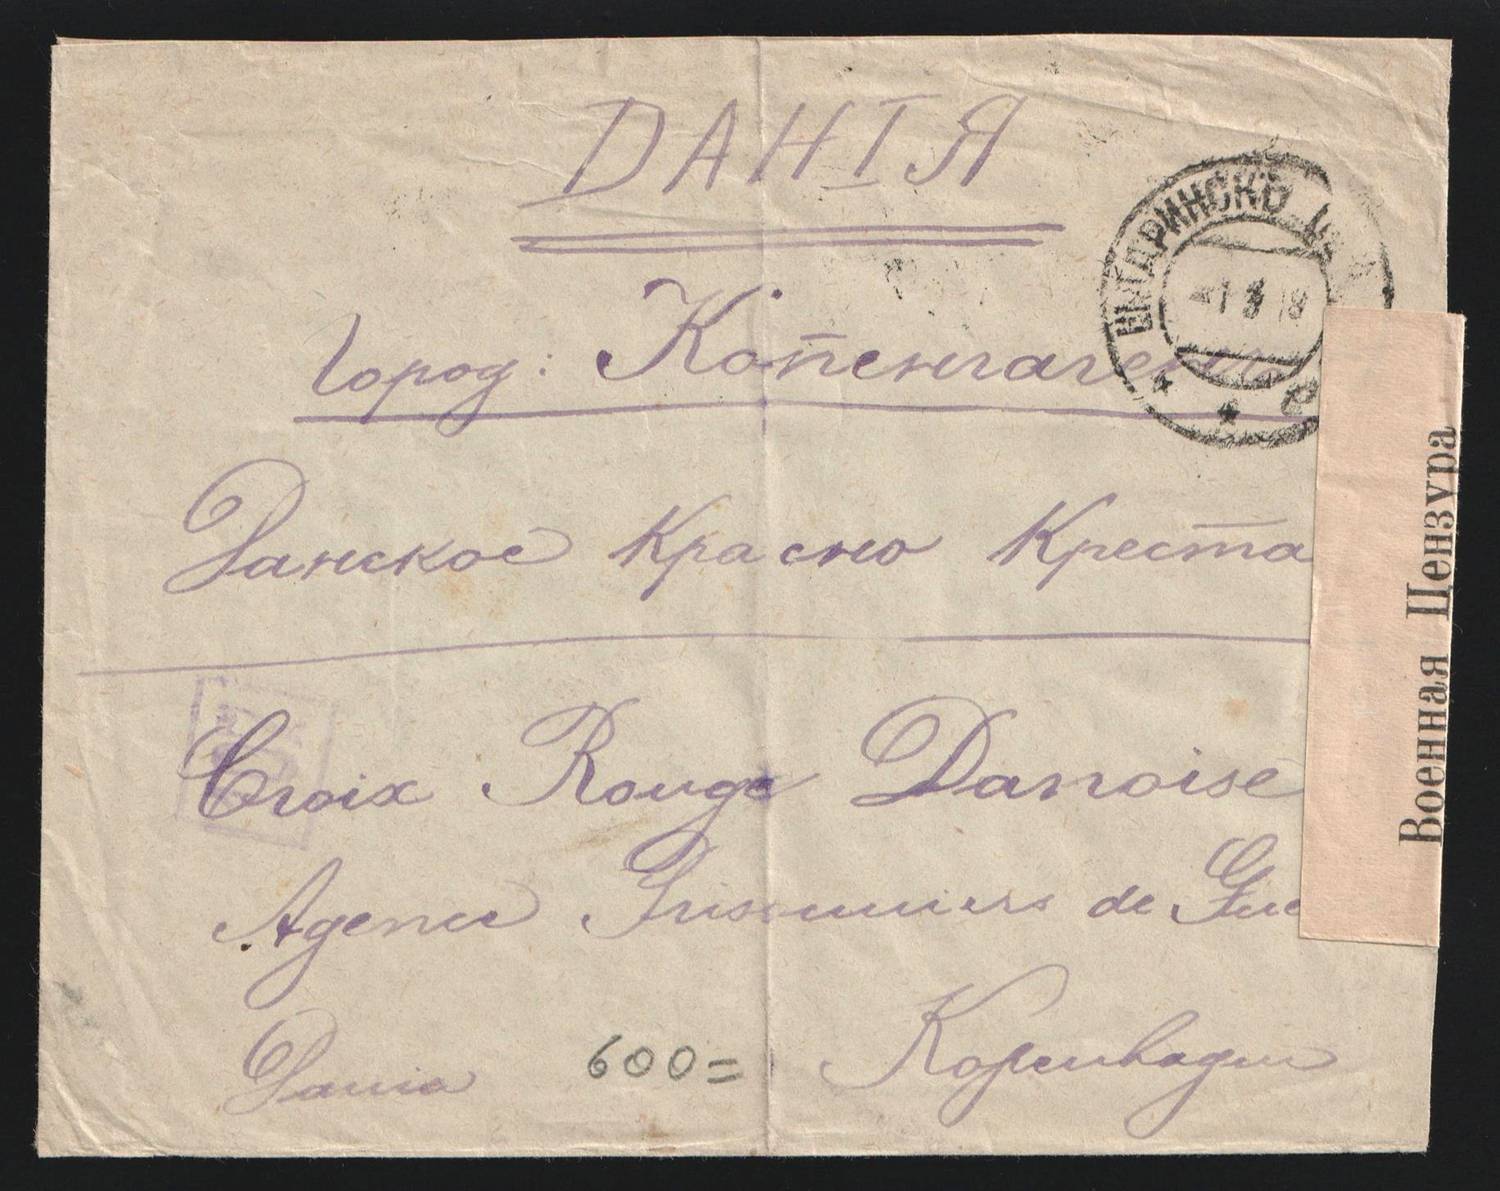 ДАНІЯ
Город: Копенгагенъ
Данское Красно Креста
Croix Rouge Danoise
Agence Prisonniers de Gue
Dania 600= Kopenhagen
Военная Цензура
-1 3 18
е